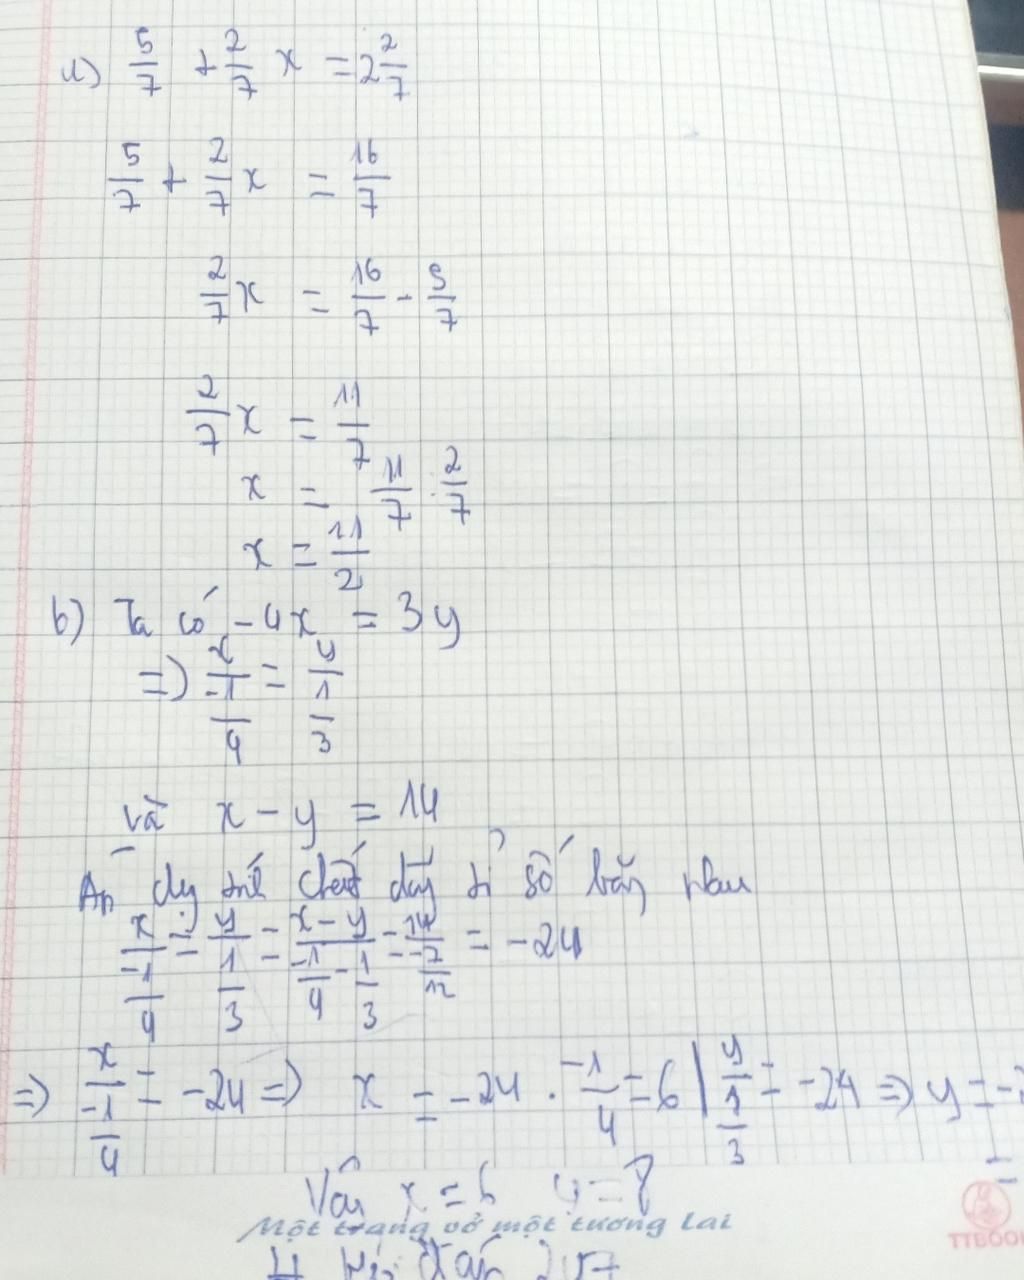 a) 5/7 + 2/7 x = 2 2/7
5/7 + 2/7 x = 16/7
2/7 x = 16/7 - 5/7
2/7 x = 11/7
x = 11/7 : 2/7
x = 11/2
b) Ta có - 4x = 3y
=> x/(-1/4) = y/(1/3)
và x - y = 14
Áp dụng t/c chất dãy tỉ số bằng nhau
x/(-1/4) = y/(1/3) = (x - y)/(-1/4 - 1/3) = 14/(-7/12) = -24
=> x/(-1/4) = -24 => x = -24 . -1/4 = 6 | y/(1/3) = -24 => y = -
Vậy x = 6 y = 8
Một trang vở một tương lai
TTBOO